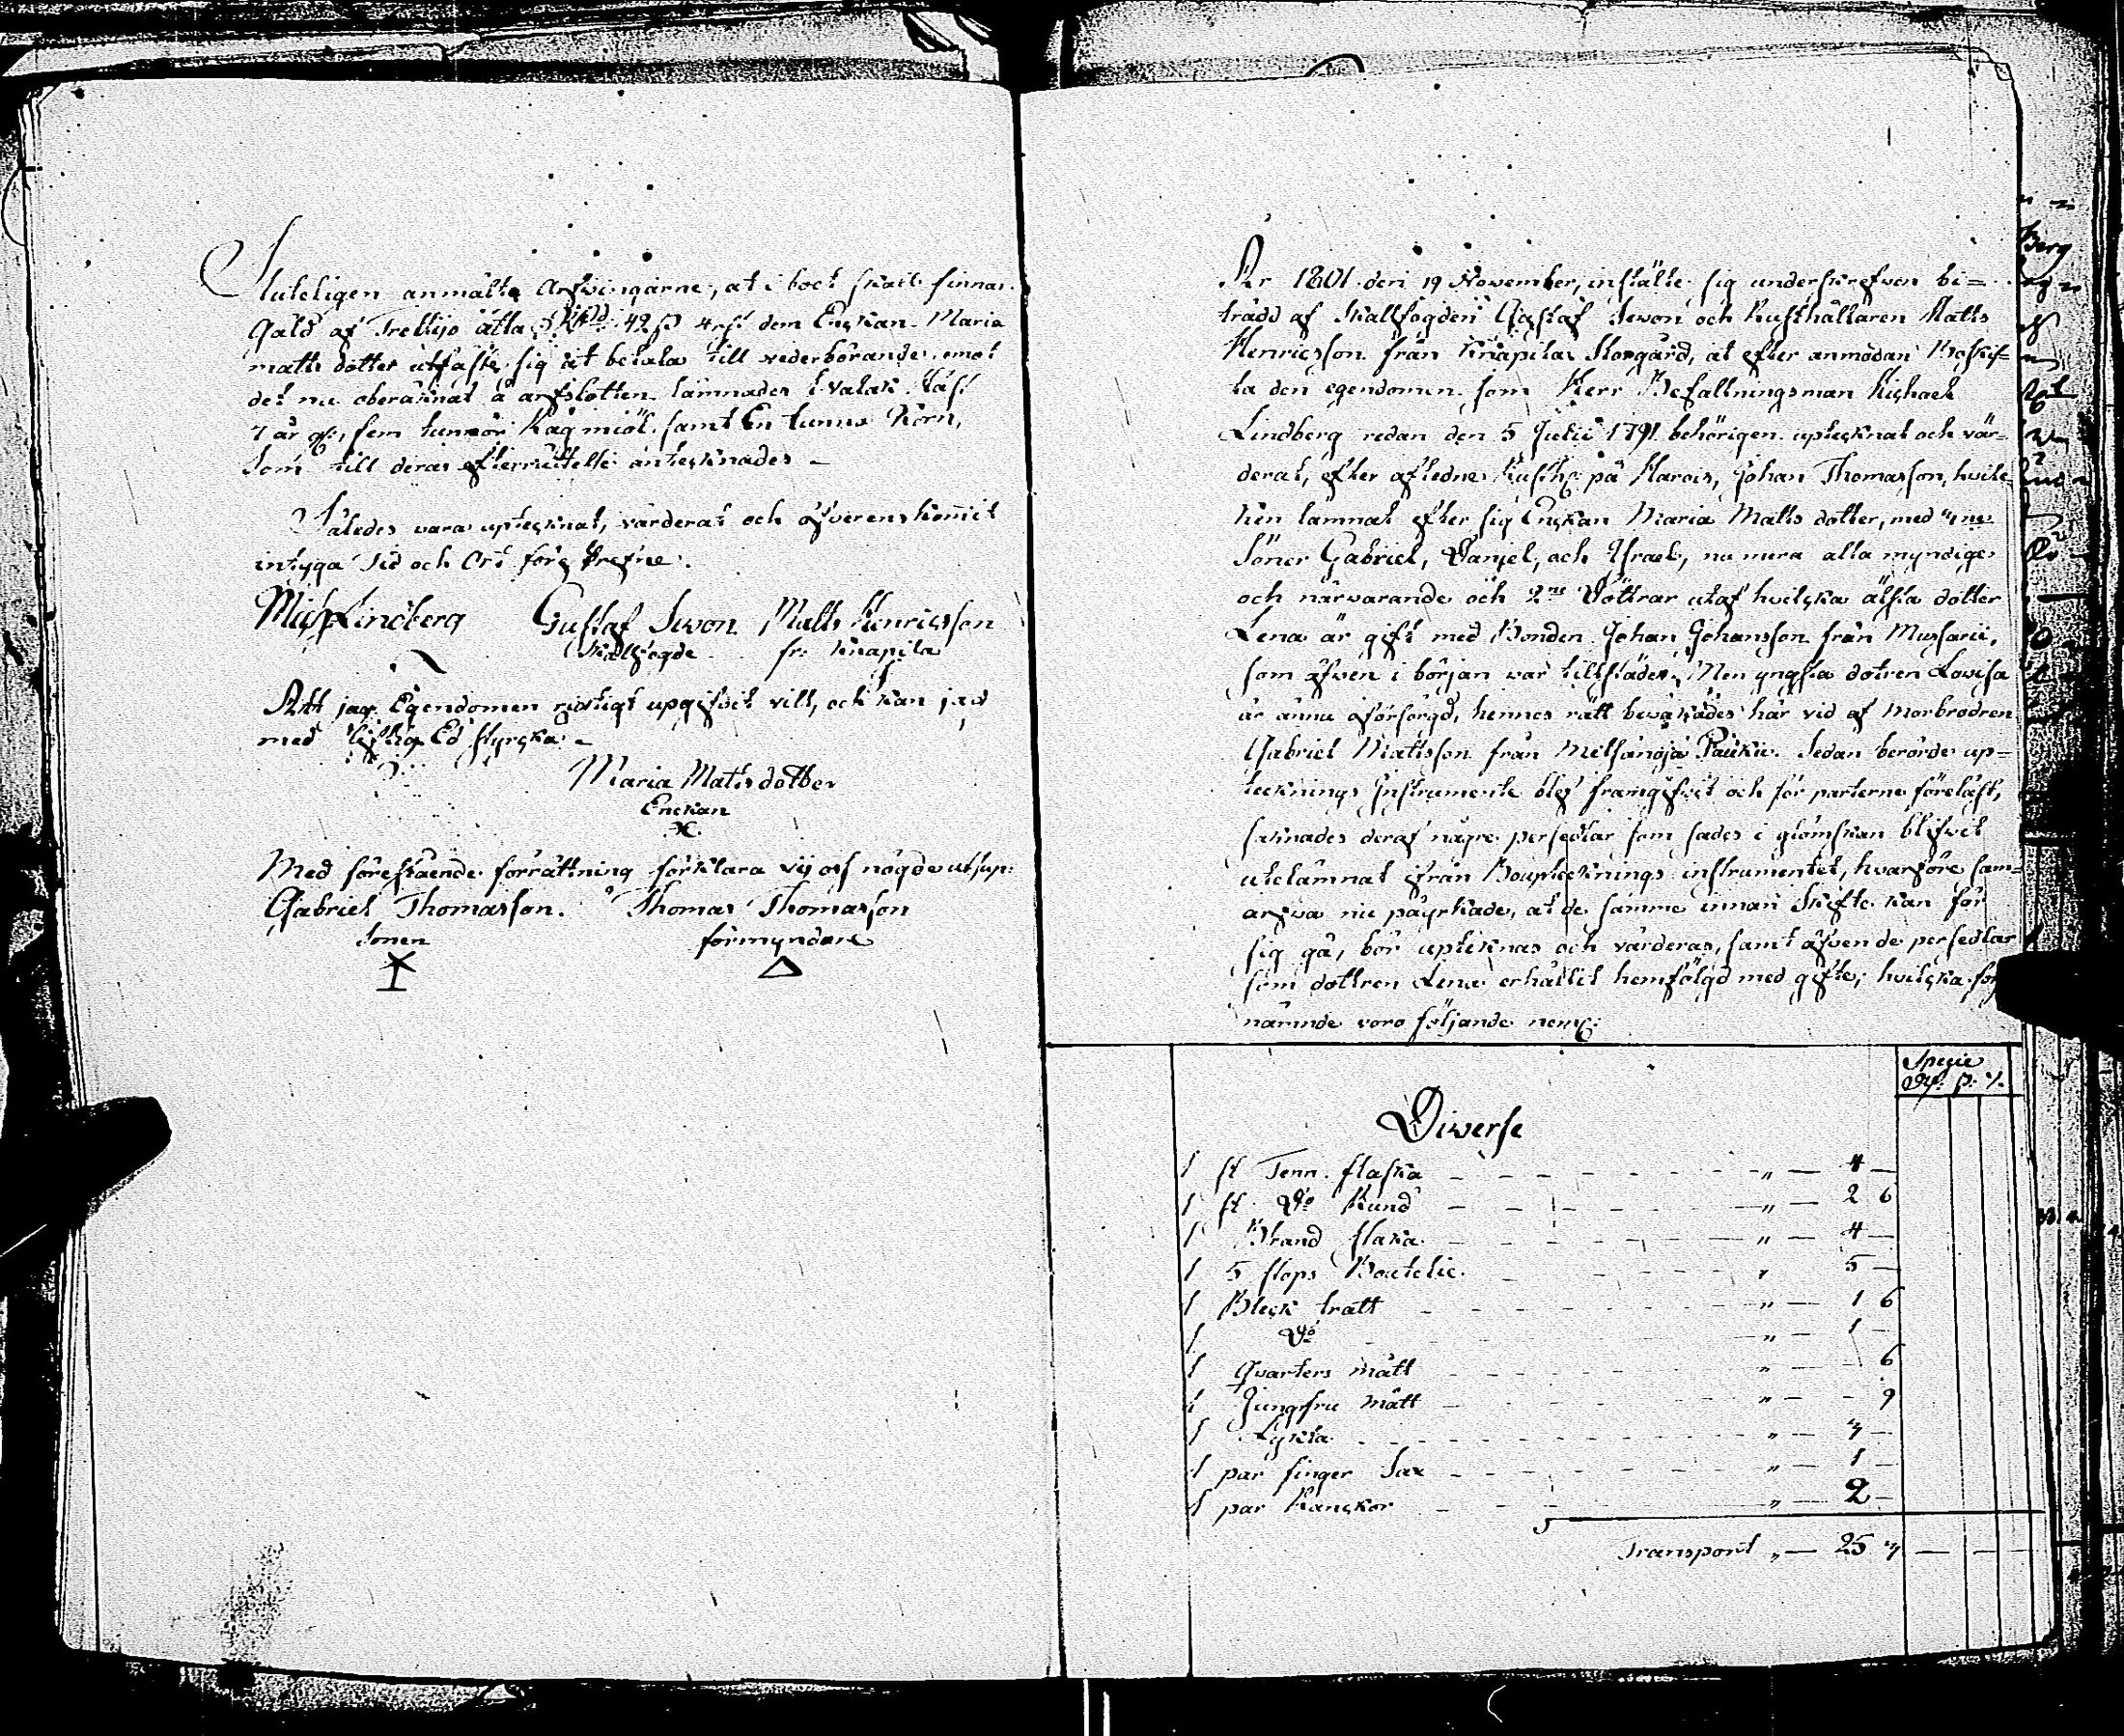 Sluteligen anmälte Arfwingarne, at i boet skall finnas
Gäld af Trettijo åtta Rdr 42 s 4 rst dem Enckan Maria
matts dotter utfäste sig at betala till vederbörande, emot
det nu oberäknat å arfslotten lämnades 1 valak häst
7 år g:l, fem tunnor Rågmiöl samt En tunna Korn,
Som till deras efterrättelse antecknades –
Således vara uptecknat, värderat och öfverenskommit
intyga Tid och Ort föreskrefne.
Mich Lindberg Gustaf Sewon Matts Henricsson
Skallfogde fr: Knapila
Att jag Egendomen ricktigt upgifvit vill, och kan jag
med liflig Ed styrcka –
Maria Matts dotter
Enckan
Med förestående förrättning förklara vij oss nögde ut sup:
Gabriel Thomasson. Thomas Thomasson
Sonen förmyndare
År 1801 den 19 November, instälte sig underskrefven bi=
trädd af Skallfogden Gustaf Sewon och Rusthållaren Matts
Henricsson från Knapila Storgård, at efter anmodan Boskif=
ta den egendomen som Herr Befallningsman Michael
Lindberg redan den 5 Julii 1791 behörigen uptecknat och vär=
derat, efter afledne Rusth: på Marois, Johan Thomasson, hvil=
ken lämnat efter sig Enckan Maria Matts dotter, med 3ne
Söner Gabriel, Danjel, och Israel, nu mera alla myndige
och närvarande och 2ne Döttrar utaf hvilcka älsta dotter
Lena är gift med Bonden Johan Johansson från Mussari,
som äfven i början war tillstädes, Men yngsta dotren Lovisa
är ännu oförsörgd, hennes rätt bevakades här vid af Morbrodren
Gabriel Mattsson från Metsänoja Paukku. Sedan berörde up=
tecknings Instrument blef framgifvit och för parterne föreläst,
saknades deraf någre persedlar som sades i glömskan blifvit
utelämnat ifrån Bouptecknings instrumentet, hvarföre sam=
arfva nu påyrkade, at de samme innan Skifte kan för
sig gå, bör uptecknas och värderas, samt äfven de persedlar
som dottren Lena erhållit hemfölgd med gifte, hvilcka för
närmde voro följande neml:
Specie
Rdr. s. r.
Diverse
1 st Tenn flaska – – – „ – 4 –
1 st Do Rund – – – „ – 2 6
1 Brand flaska – – – „ – 4 –
1 5 stops Boutelie – – – „ 5 –
1 Bleck tratt – – – „ – 1 6
1 Do – – – „ – 1 –
1 Qvarters mått – – – „ – – 6
1 Jungfru mått – – – „ – – 9
1 Lykta – – – „ – 3 –
1 par finger Sax – – – „ – 1 –
1 par Kanckor – – – „ – 2 –
Transport „ – 25 3